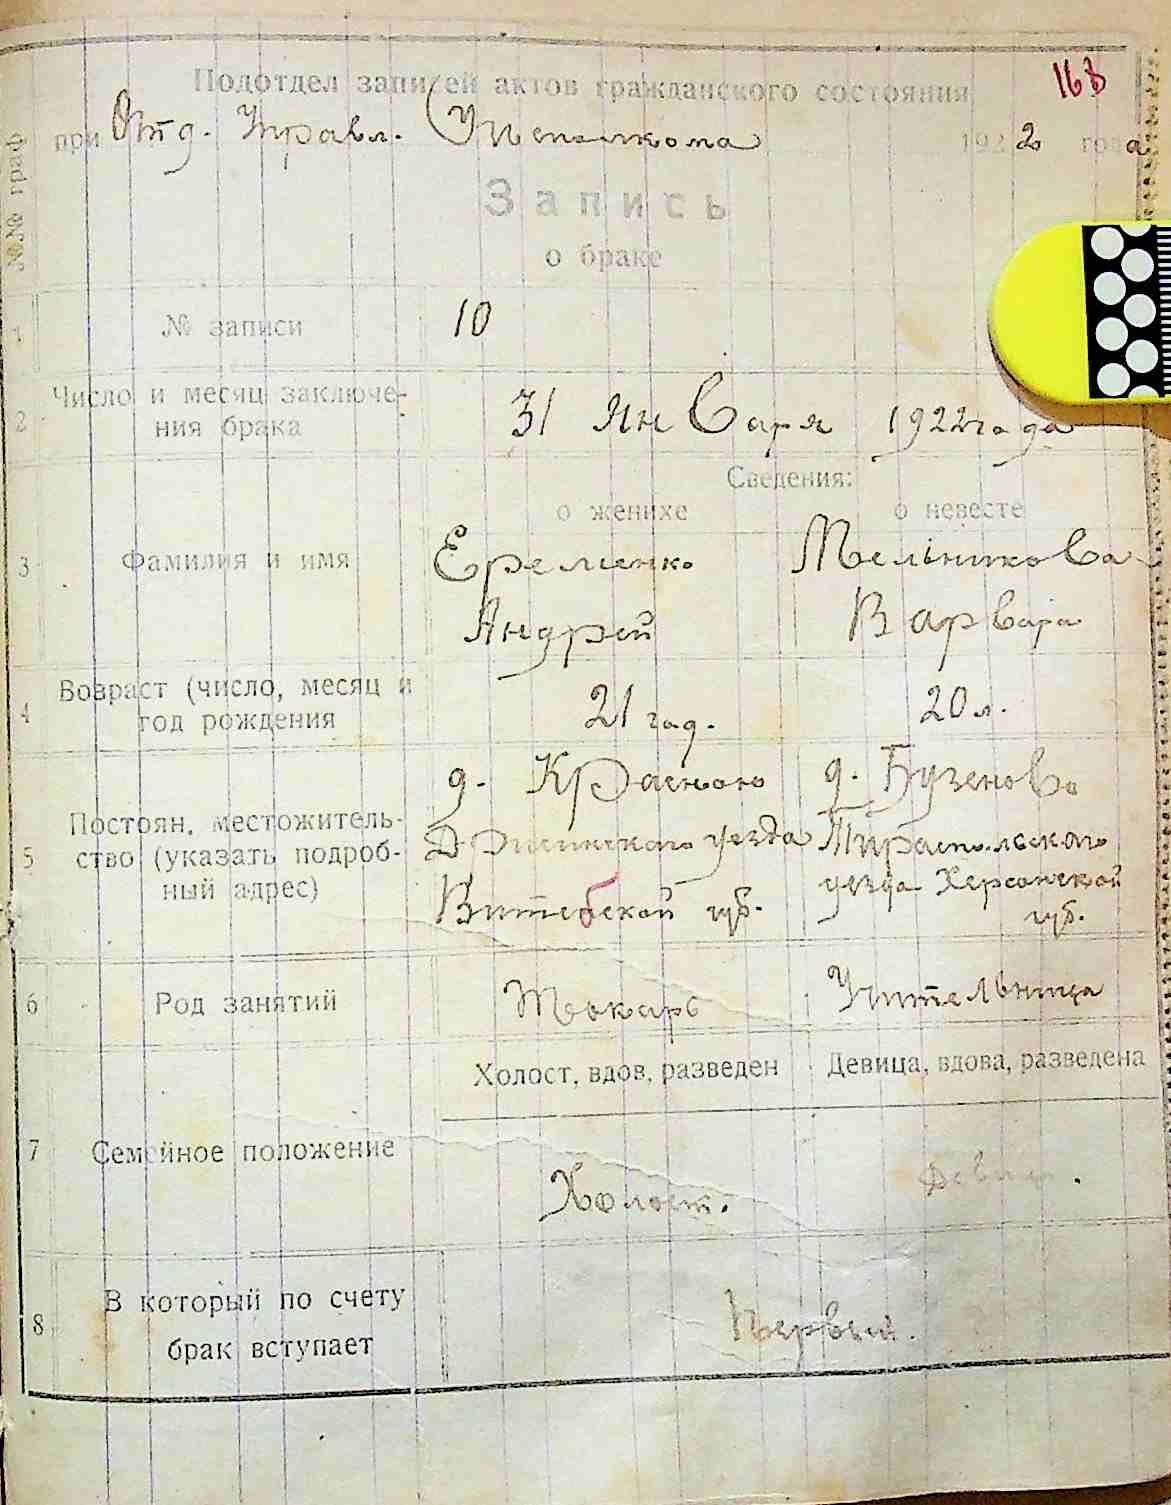 Подотдел записей актов гражданского состояния
168
при Отд. Управл. Уисполкома 1922 года
№№ граф
Запись
о браке
1 № записи 10
2 Число и месяц заключе-
ния брака 31 января 1922 года
Сведения:
о женихе о невесте
3 Фамилия и имя Еременко Мельникова
Андрей Варвара
4 Возраст (число, месяц и
год рождения 21 год. 20 л.
д. д.
5 Постоян. местожитель-
ство (указать подроб-
ный адрес)
Дрисинского уезда Тираспольского
Витебской губ. уезда Херсонской
губ.
6 Род занятий Токарь Учительница
Холост, вдов, разведен Девица, вдова, разведена
7 Семейное положение Холост. Девица.
8 В который по счету
брак вступает Первый.